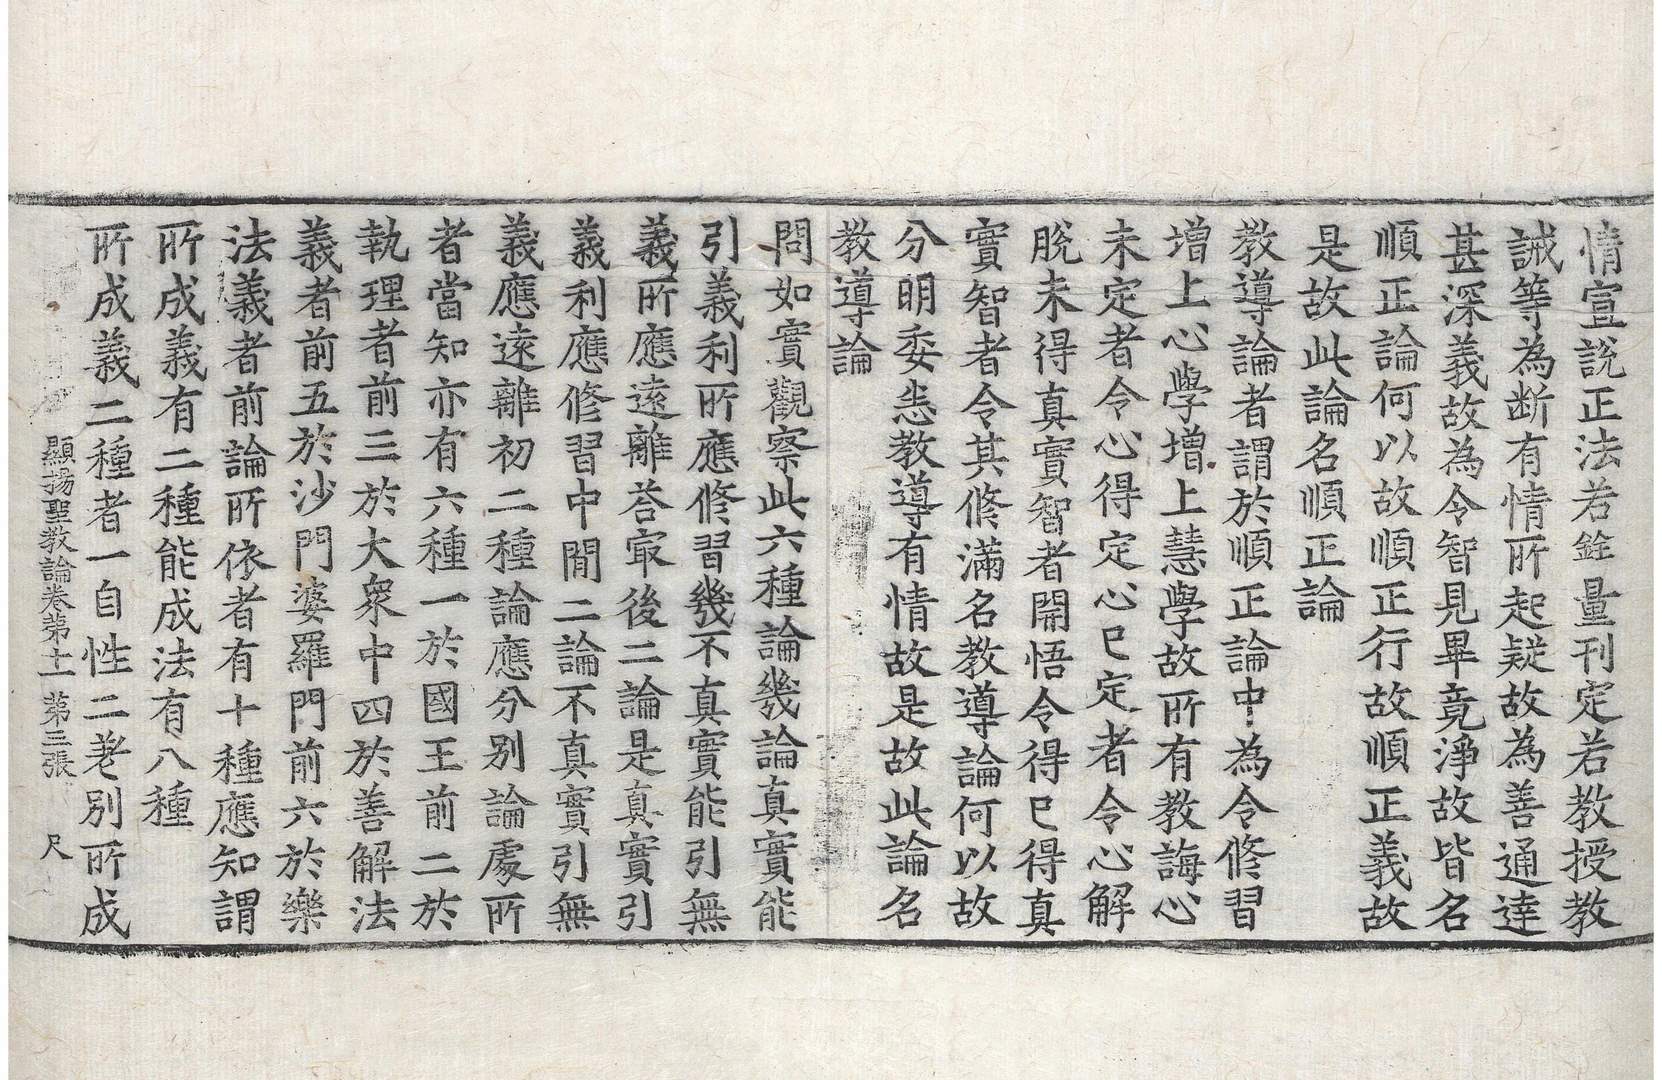 情宣說正法若銓量刊定若教授教
誡等為斷有情所起疑故為善通達
甚深義故為令智見畢竟淨故皆名
順正論何以故順正行故順正義故
是故此論名順正論
教導論者謂於順正論中為令修習
增上心學增上慧學故所有教誨心
未定者令心得定心已定者令心解
脫未得真實智者開悟令得已得真
實智者令其修滿名教導論何以故
分明委悉教導有情故是故此論名
教導論
問如實觀察此六種論幾論真實能
引義利所應修習幾不真實能引無
義所應遠離荅冣後二論是真實引
義利應修習中間二論不真實引無
義應遠離初二種論應分別論處所
者當知亦有六種一於國王前二於
執理者前三於大衆中四於善解法
義者前五於沙門婆羅門前六於樂
法義者前論所依者有十種應知謂
所成義有二種能成法有八種
所成義二種者一自性二差別所成
顯揚聖教論卷第十一 第三張 尺